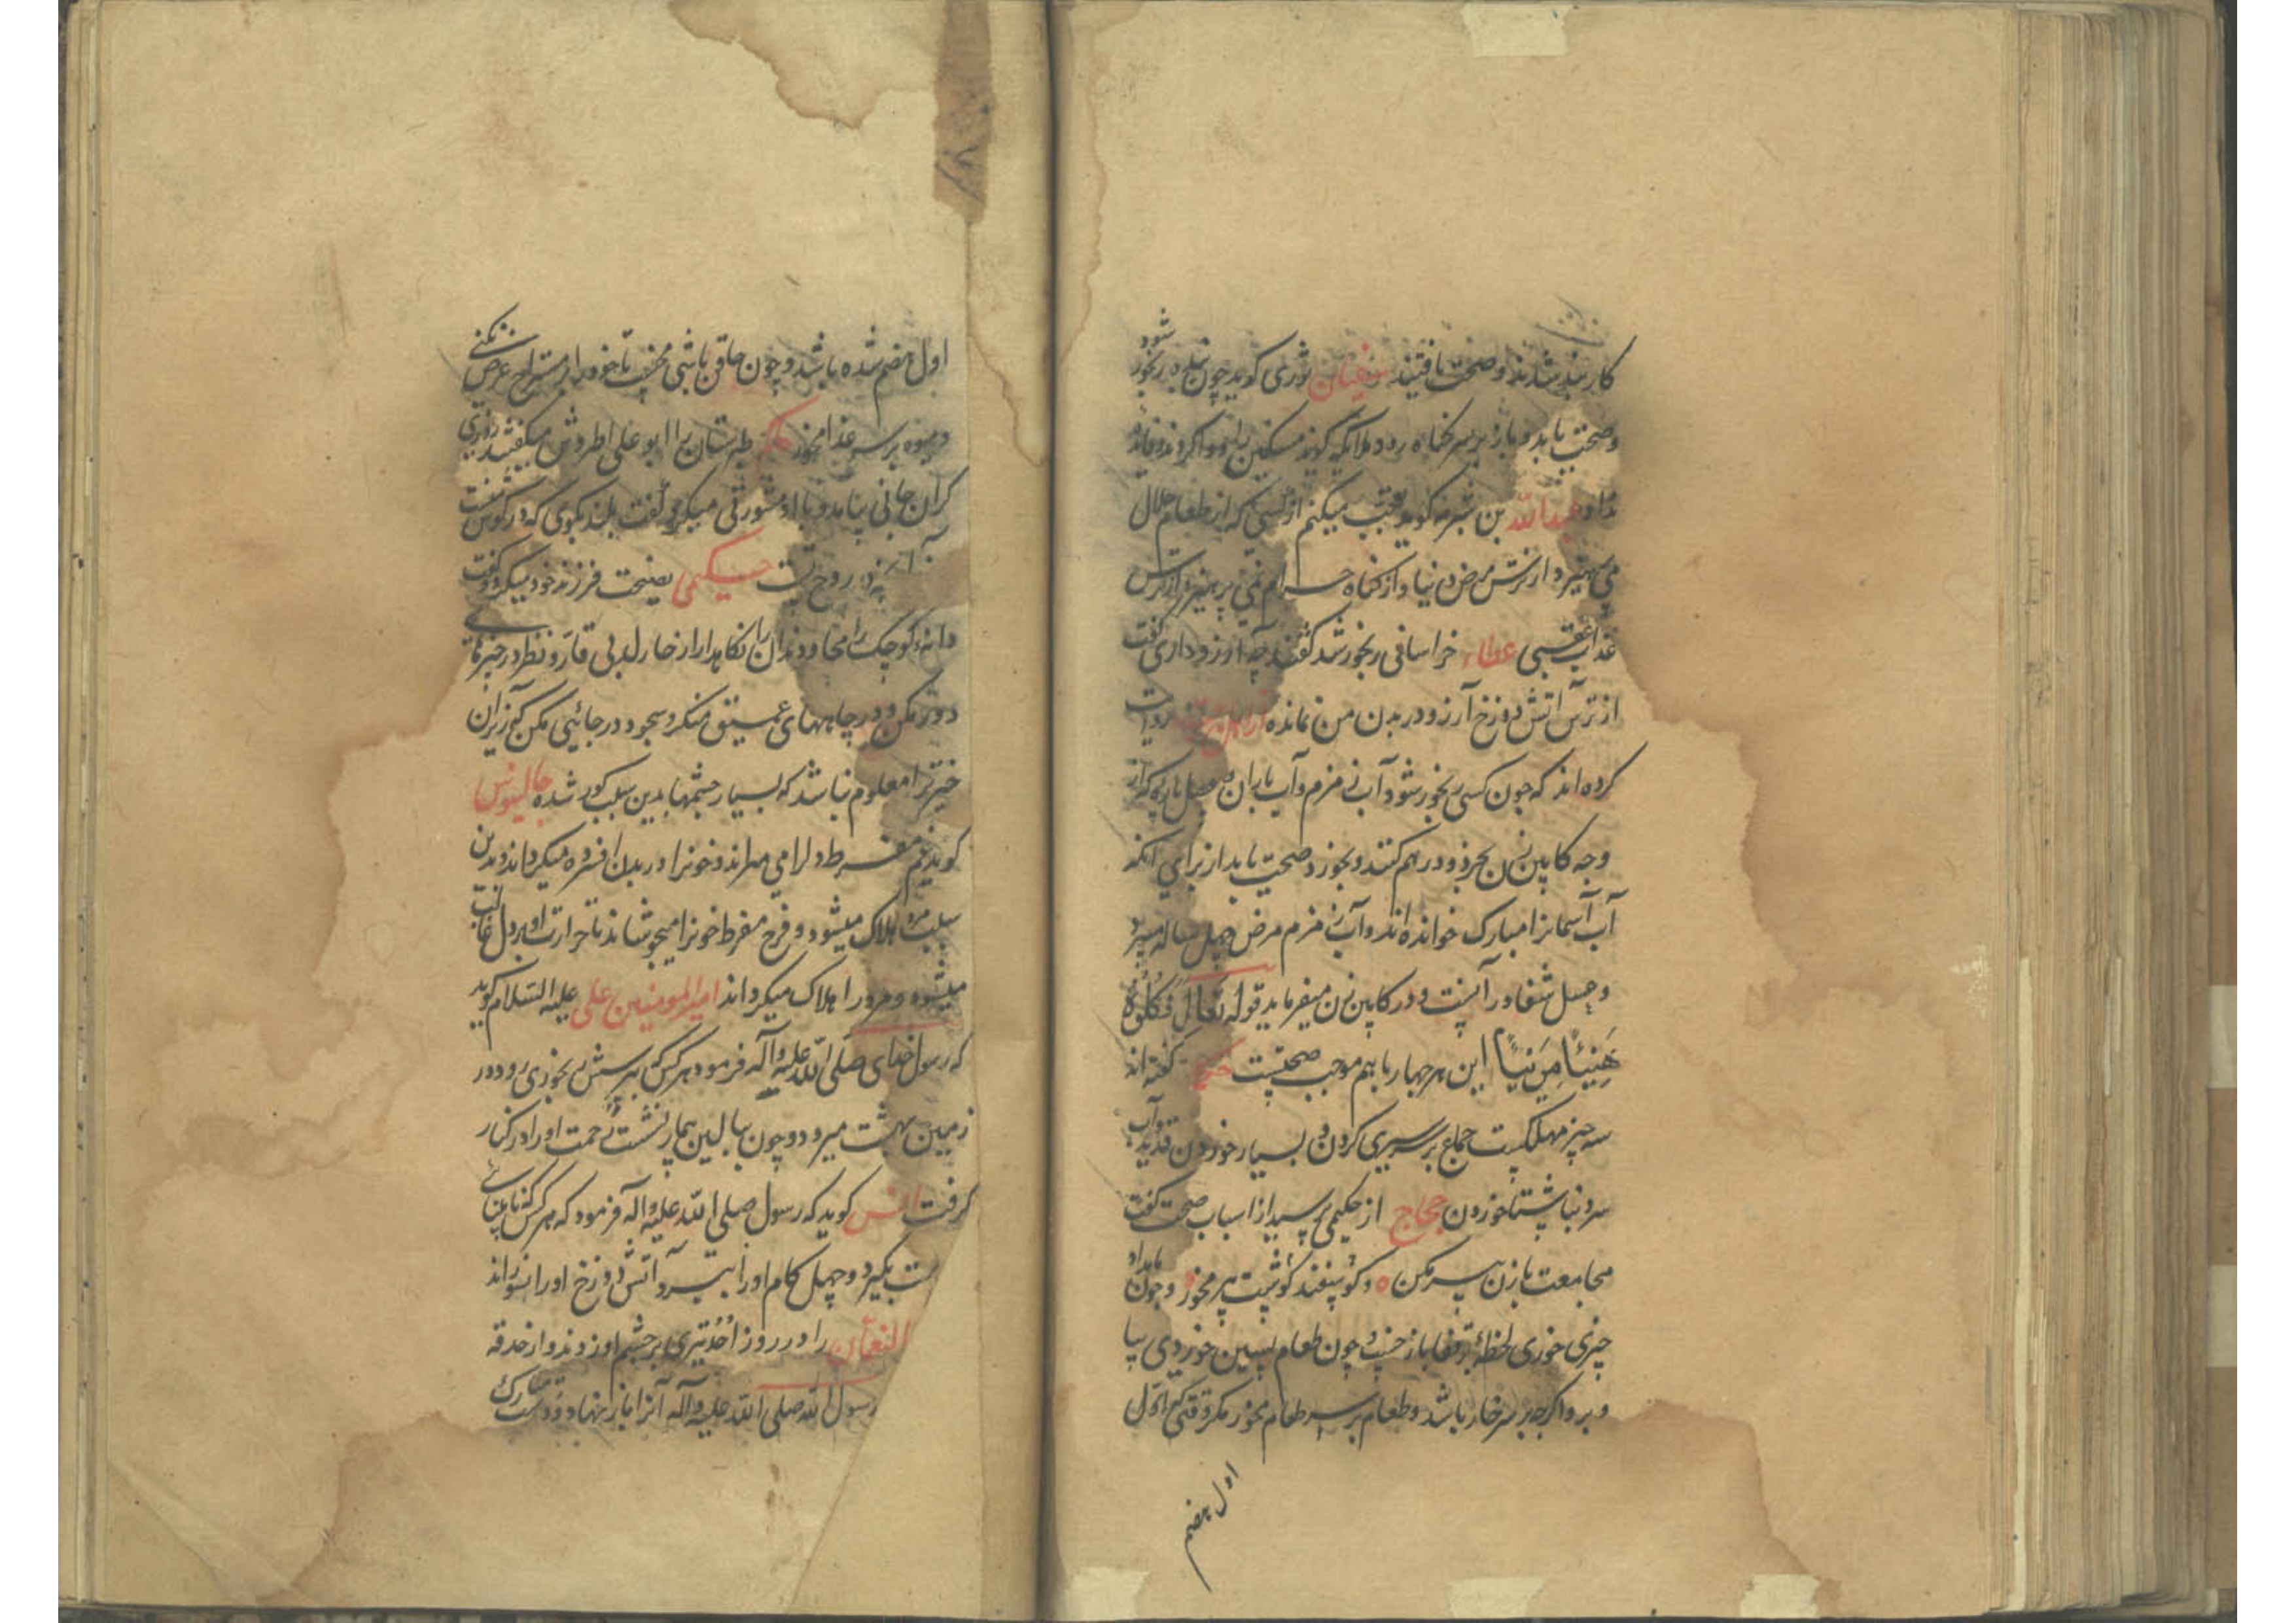 کار بند شدند و صحت یافتند سفیان ثوری کوید چون بنده رنجور شود
و صحت یابد و باز بر سر کناه رود ملائکه کویند مسکین را دوا کردند و فایده
نداد عبدالله بن شبرمه کوید تعجب میکنم از کسی که از طعام حلال
می پرهیزد از ترس مرض دنیا و از کناه حرام نمی پرهیزد از ترس
عذاب عقبی عطاء خراسانی رنجور شد کفتند چه آرزو داری کفت
از ترس آتش دوزخ آرزو در بدن من نمانده روایت
کرده اند که چون کسی رنجور شود آب زمزم و آب باران و عسل پاره که از
وجه کابین زن بخرد و در هم کنند و بخورد صحت یابد از برای آنکه
آب آسمانرا مبارک خوانده اند و آب زمزم مرض چهل ساله میبرد
و عسل شفا در آنست و در کابین زن میفرماید قوله تعالی فَکُلُوهُ
هَنِیئًا مَرِیئًا این هر چهار باهم موجب صحتست حکیم کفته اند
سه چیز مهلکست جماع بر سیری کردن و بسیار خوردن قدید و آب
سرد بناشتا خوردن حجاج از حکیمی پرسید از اسباب صحت کفت
مجامعت با زن پیر مکن و کوسفند کوشت پیر مخور و چون بامداد
چیزی خوری لحظهٔ بقفا باز خسپ و چون طعام پسین خوردی بپا
و برو اکر چه بر سر خار باشد و طعام بر سر طعام مخور مکر وقتی که اول
اول هضم
اول هضم شده باشد و چون حاقن باشی مخسپ تا خود را بر مستراح عرض نکنی
و میوه بر سر غذا مخور حکیم طبرستان را ابو علی اطروش میکفتند روزی
کران جانی بیامد و با او مشورتی میکرد کفت بلند بکوی که در کوش
روح نیست حکیمی نصیحت فرزند خود میکرد و کفت
دانهٔ کوچک را مخا و دندان را نکاهدار از خار لب بی
دور مکن و در چاههای عمیق منکر و سجود در جائی مکن که زیر آن
خیر ترا معلوم نباشد که بسیار چشمها بدین سبب کور شده جالینوس
کوید غم مفرط دل را می میراند و خونرا در بدن افسرده میکرداند و بدین
سبب مرد هلاک میشود و فرح مفرط خونرا میجوشاند تا حرارت او بر دل غالب
میشود و مرد را هلاک میکرداند امیرالمومنین علی علیه السلام کوید
که رسول خدای صلی الله علیه و آله فرمود هر کس که بپرسش رنجوری رود در
زمین بهشت میرود و چون ببالین بیمار نشست رحمت او را در کنار
کرفت انس کوید که رسول صلی الله علیه و آله فرمود که هر کس که نابینائی
ست بکیرد و چهل کام او را ببرد آتش دوزخ او را نسوزاند
النعمان را در روز اُحُد تیری بر چشم او زدند و از حدقه
رسول الله صلی الله علیه و آله آنرا باز نهاد و دست مبارک